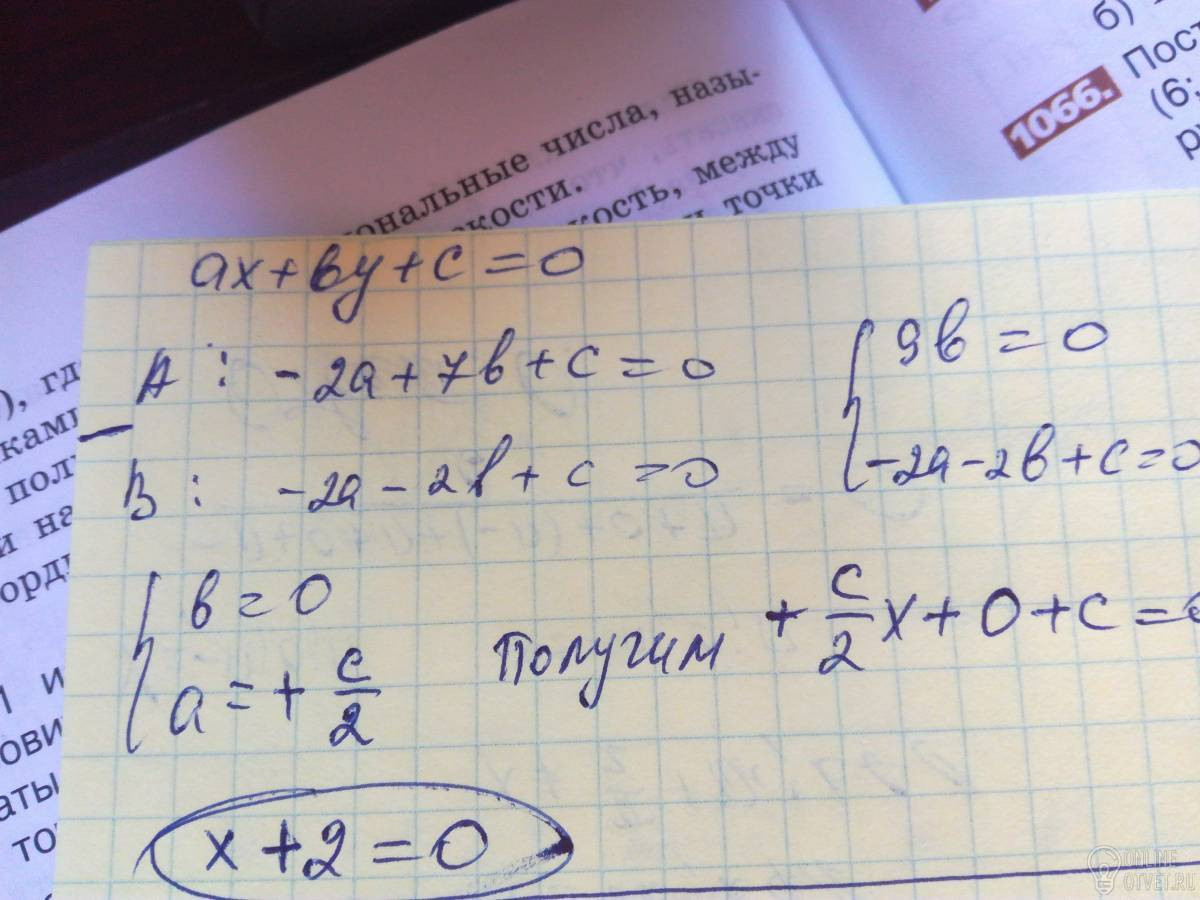 б)
1066. Пост
(6;
р
ональные числа, назы-
скости.
кость, между
точки
), гд
ками
пол
и на
орди
и
ови
аты
то
ax + by + c = 0
A : - 2a + 7b + c = 0
B : - 2a - 2b + c = 0
{ 9b = 0
-2a - 2b + c = 0
{ b = 0
a = + c/2
Получим + c/2 x + 0 + c = 0
x + 2 = 0
ONLINE
OTVET.RU